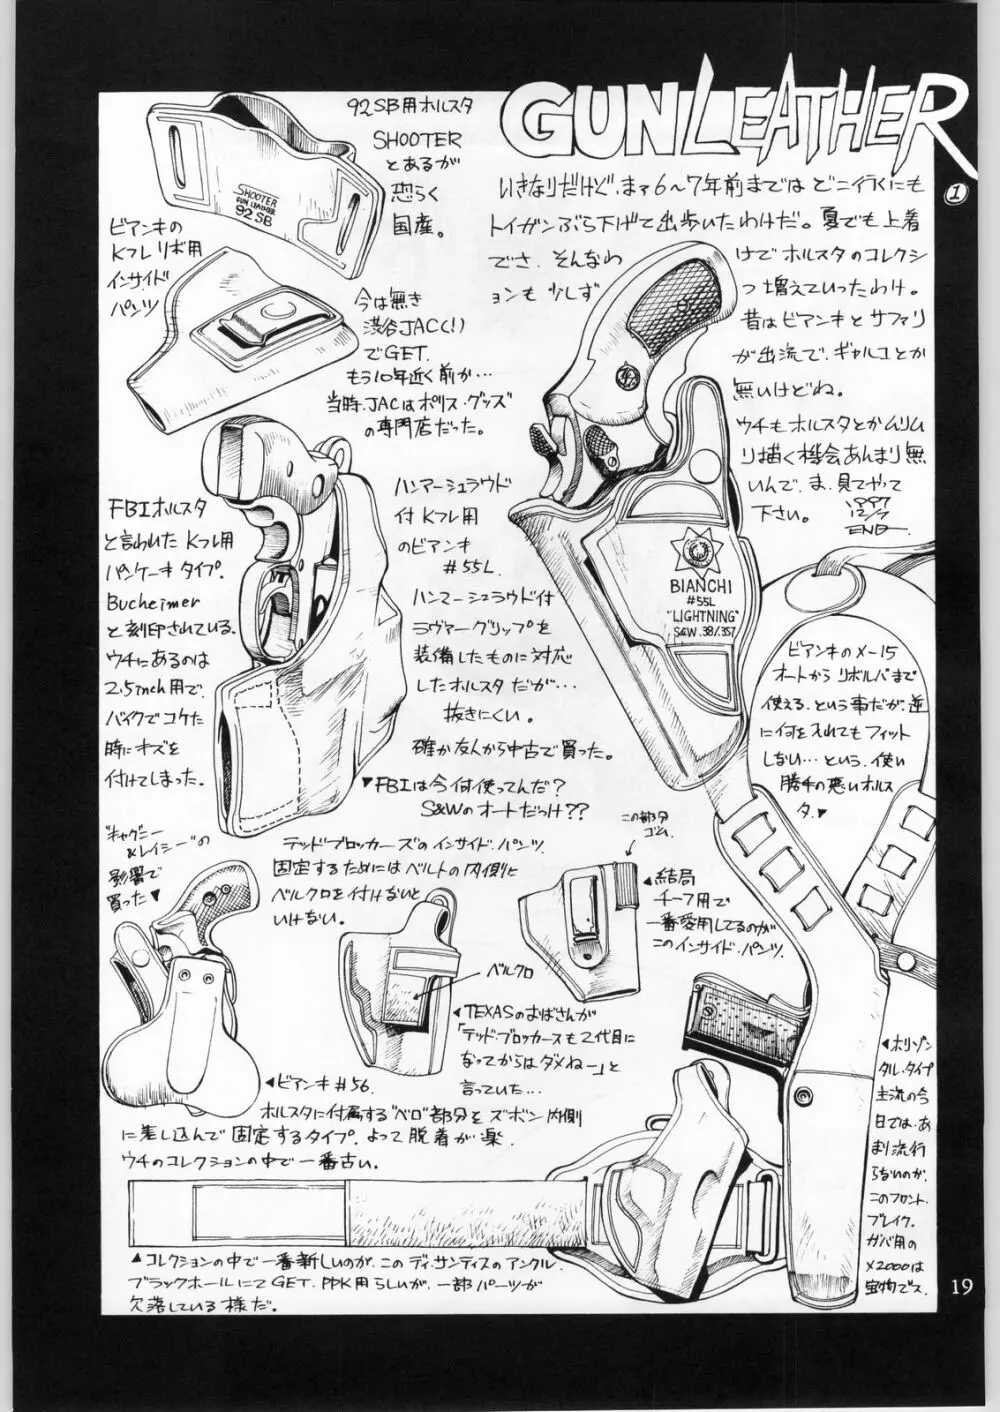 GUN LEATHER
①
いきなりだけど、まァ6〜7年前までは どこ行くにも
トイガンぶら下げて出歩いたわけだ。夏でも上着
でさ、そんなわ
けで ホルスタのコレクシ
ョンも 少しず
つ 増えていったわけ。
昔はビアンキとサファリ
が主流で、ギャルコとか
無いけどね。
ウチもホルスタとかムリム
リ描く機会あんまり無
いんで、ま、見てやって
下さい。
1997
12/7
END
92SB用ホルスタ
SHOOTER
とあるが
恐らく
国産。
SHOOTER
GUN LEATHER
92 SB
ビアンキの
Kフレ リボ用
インサイド
パンツ
今は無き
渋谷JAC(!)
でGET.
もう10年近く前か…
当時、JACはポリス・グッズ
の専門店だった。
FBIホルスタ
と言われた Kフレ用
パンケーキ タイプ.
Bucheimer
と刻印されている.
ウチにあるのは
2.5inch用で、
バイクでコケた
時にキズを
付けてしまった。
ハンマーシュラウド
付 Kフレ用
のビアンキ
#55L.
ハンマーシュラウド付
ラヴァーグリップを
装備したものに対応
したホルスタ だが…
抜きにくい。
確か友人から中古で買った。
▼FBIは今何使ってんだ?
S&Wのオートだっけ??
BIANCHI
#55L
"LIGHTNING"
S&W .38/.357
ビアンキのX-15
オートから リボルバまで
使える、という事だが、逆
に何を入れてもフィット
しない…という、使い
勝手の悪いホルス
タ.▼
"キャグニー
&レイシー"の
影響で
買った▼
テッド・ブロッカーズのインサイド・パンツ.
固定するためにはベルトの内側に
ベルクロを付けないと
いけない。
ベルクロ
この部分
ゴム.
◀結局
チーフ用で
一番愛用してるのが
このインサイド・パンツ.
◀TEXASのおばさんが
「テッド・ブロッカースも2代目に
なってからはダメねー」と
言っていた…
◀ビアンキ#56.
ホルスタに付属する"ベロ"部分を ズボン内側
に差し込んで 固定するタイプ. よって 脱着が楽.
ウチのコレクションの中で一番古い.
◀ホリゾン
タル・タイプ
主流の今
日では、あ
まり流行
らないのが、
このフロント
ブレイク.
ガバ用の
X2000は
宝物でス.
▲コレクションの中で一番新しいのが、この ディ・サンティスのアンクル.
ブラックホールにて GET. PPK用らしいが、一部パーツが
欠落している 様だ.
19